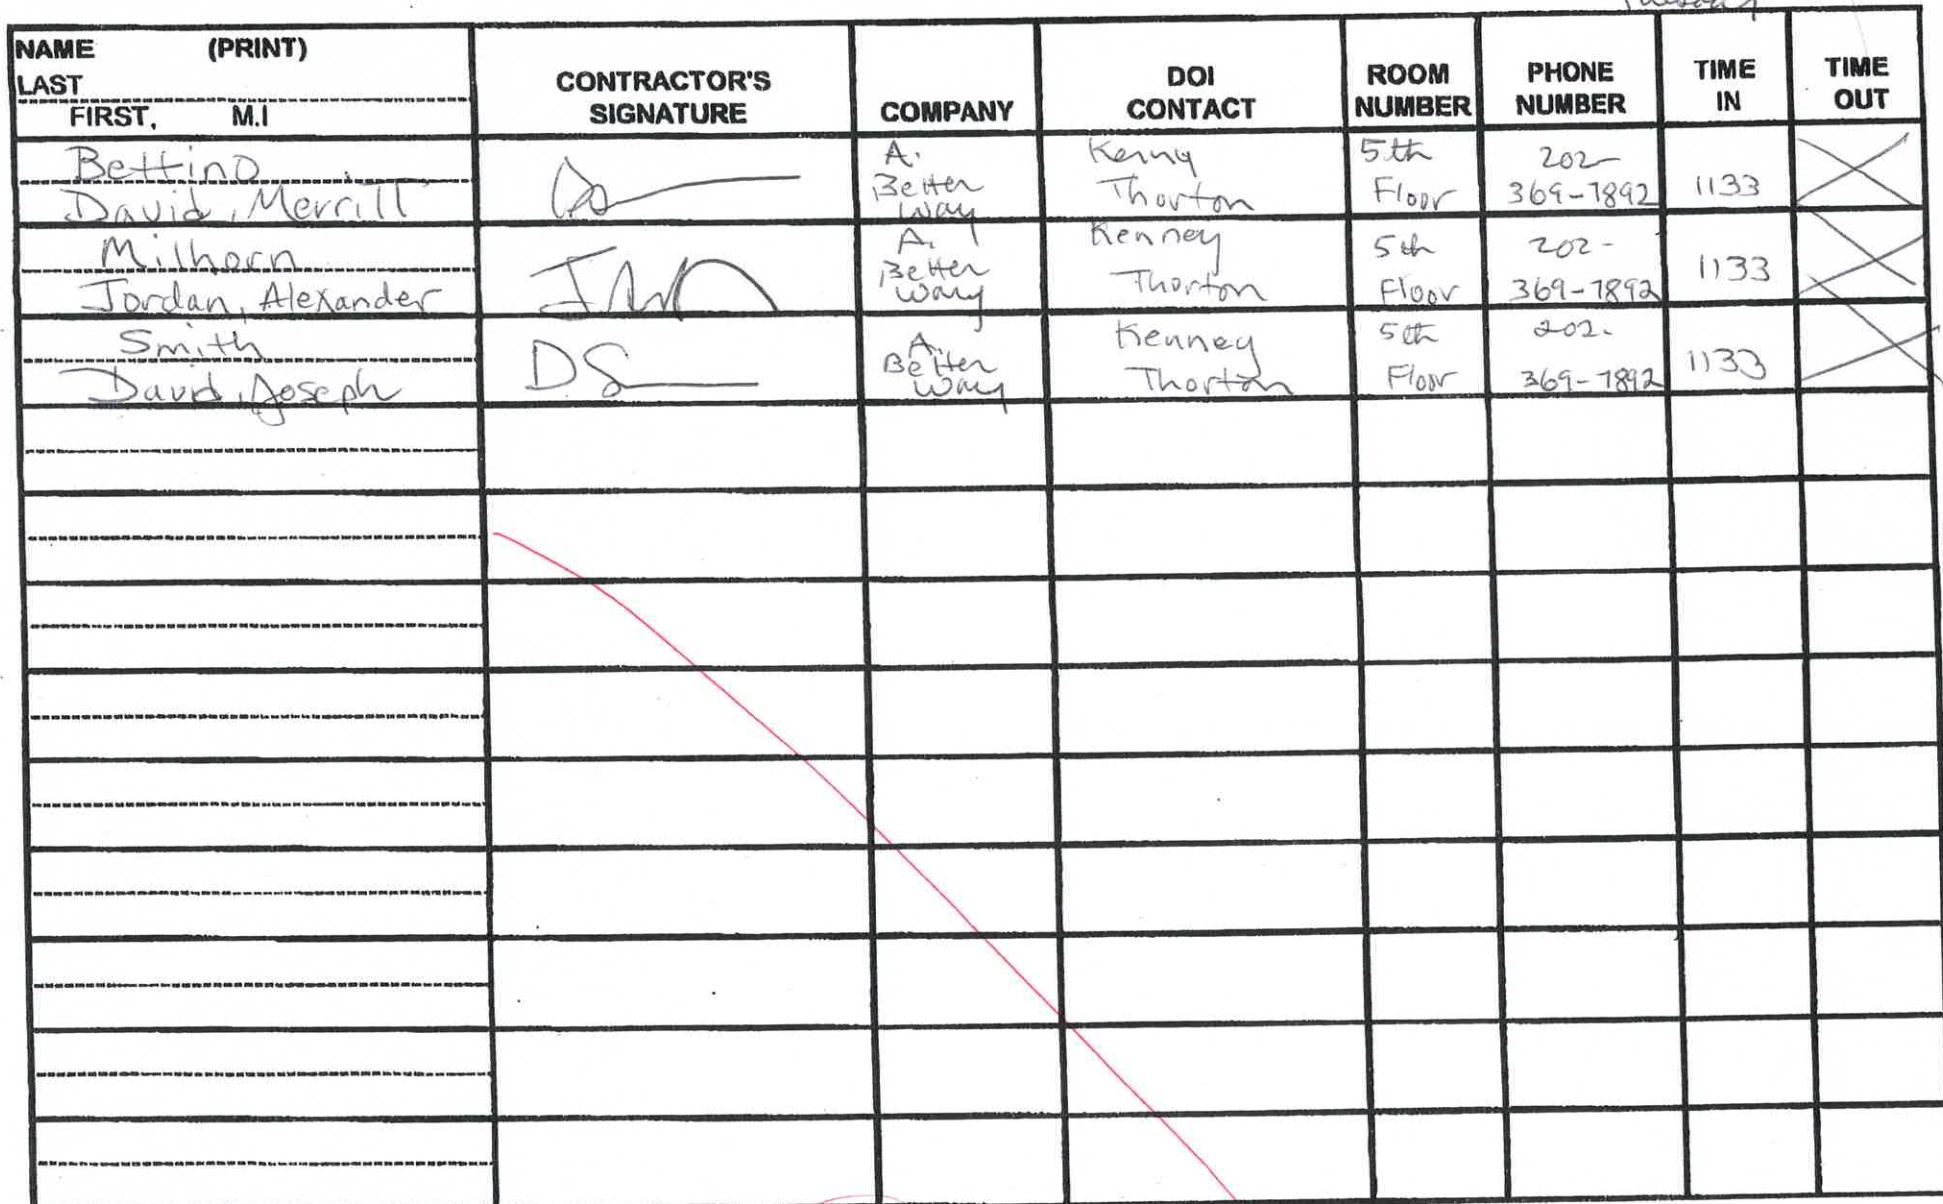 Tuesday
NAME (PRINT)
LAST
FIRST, M.I
CONTRACTOR'S
SIGNATURE
COMPANY
DOI
CONTACT
ROOM
NUMBER
PHONE
NUMBER
TIME
IN
TIME
OUT
Bettino
David, Merrill
A.
Better
Way
Kenny
Thorton
5th
Floor
202-
369-7892
1133
Milhorn
Jordan, Alexander
A.
Better
Way
Kenney
Thorton
5th
Floor
202-
369-7892
1133
Smith
David, Joseph
DS
A.
Better
Way
Kenney
Thorton
5th
Floor
202-
369-7892
1133